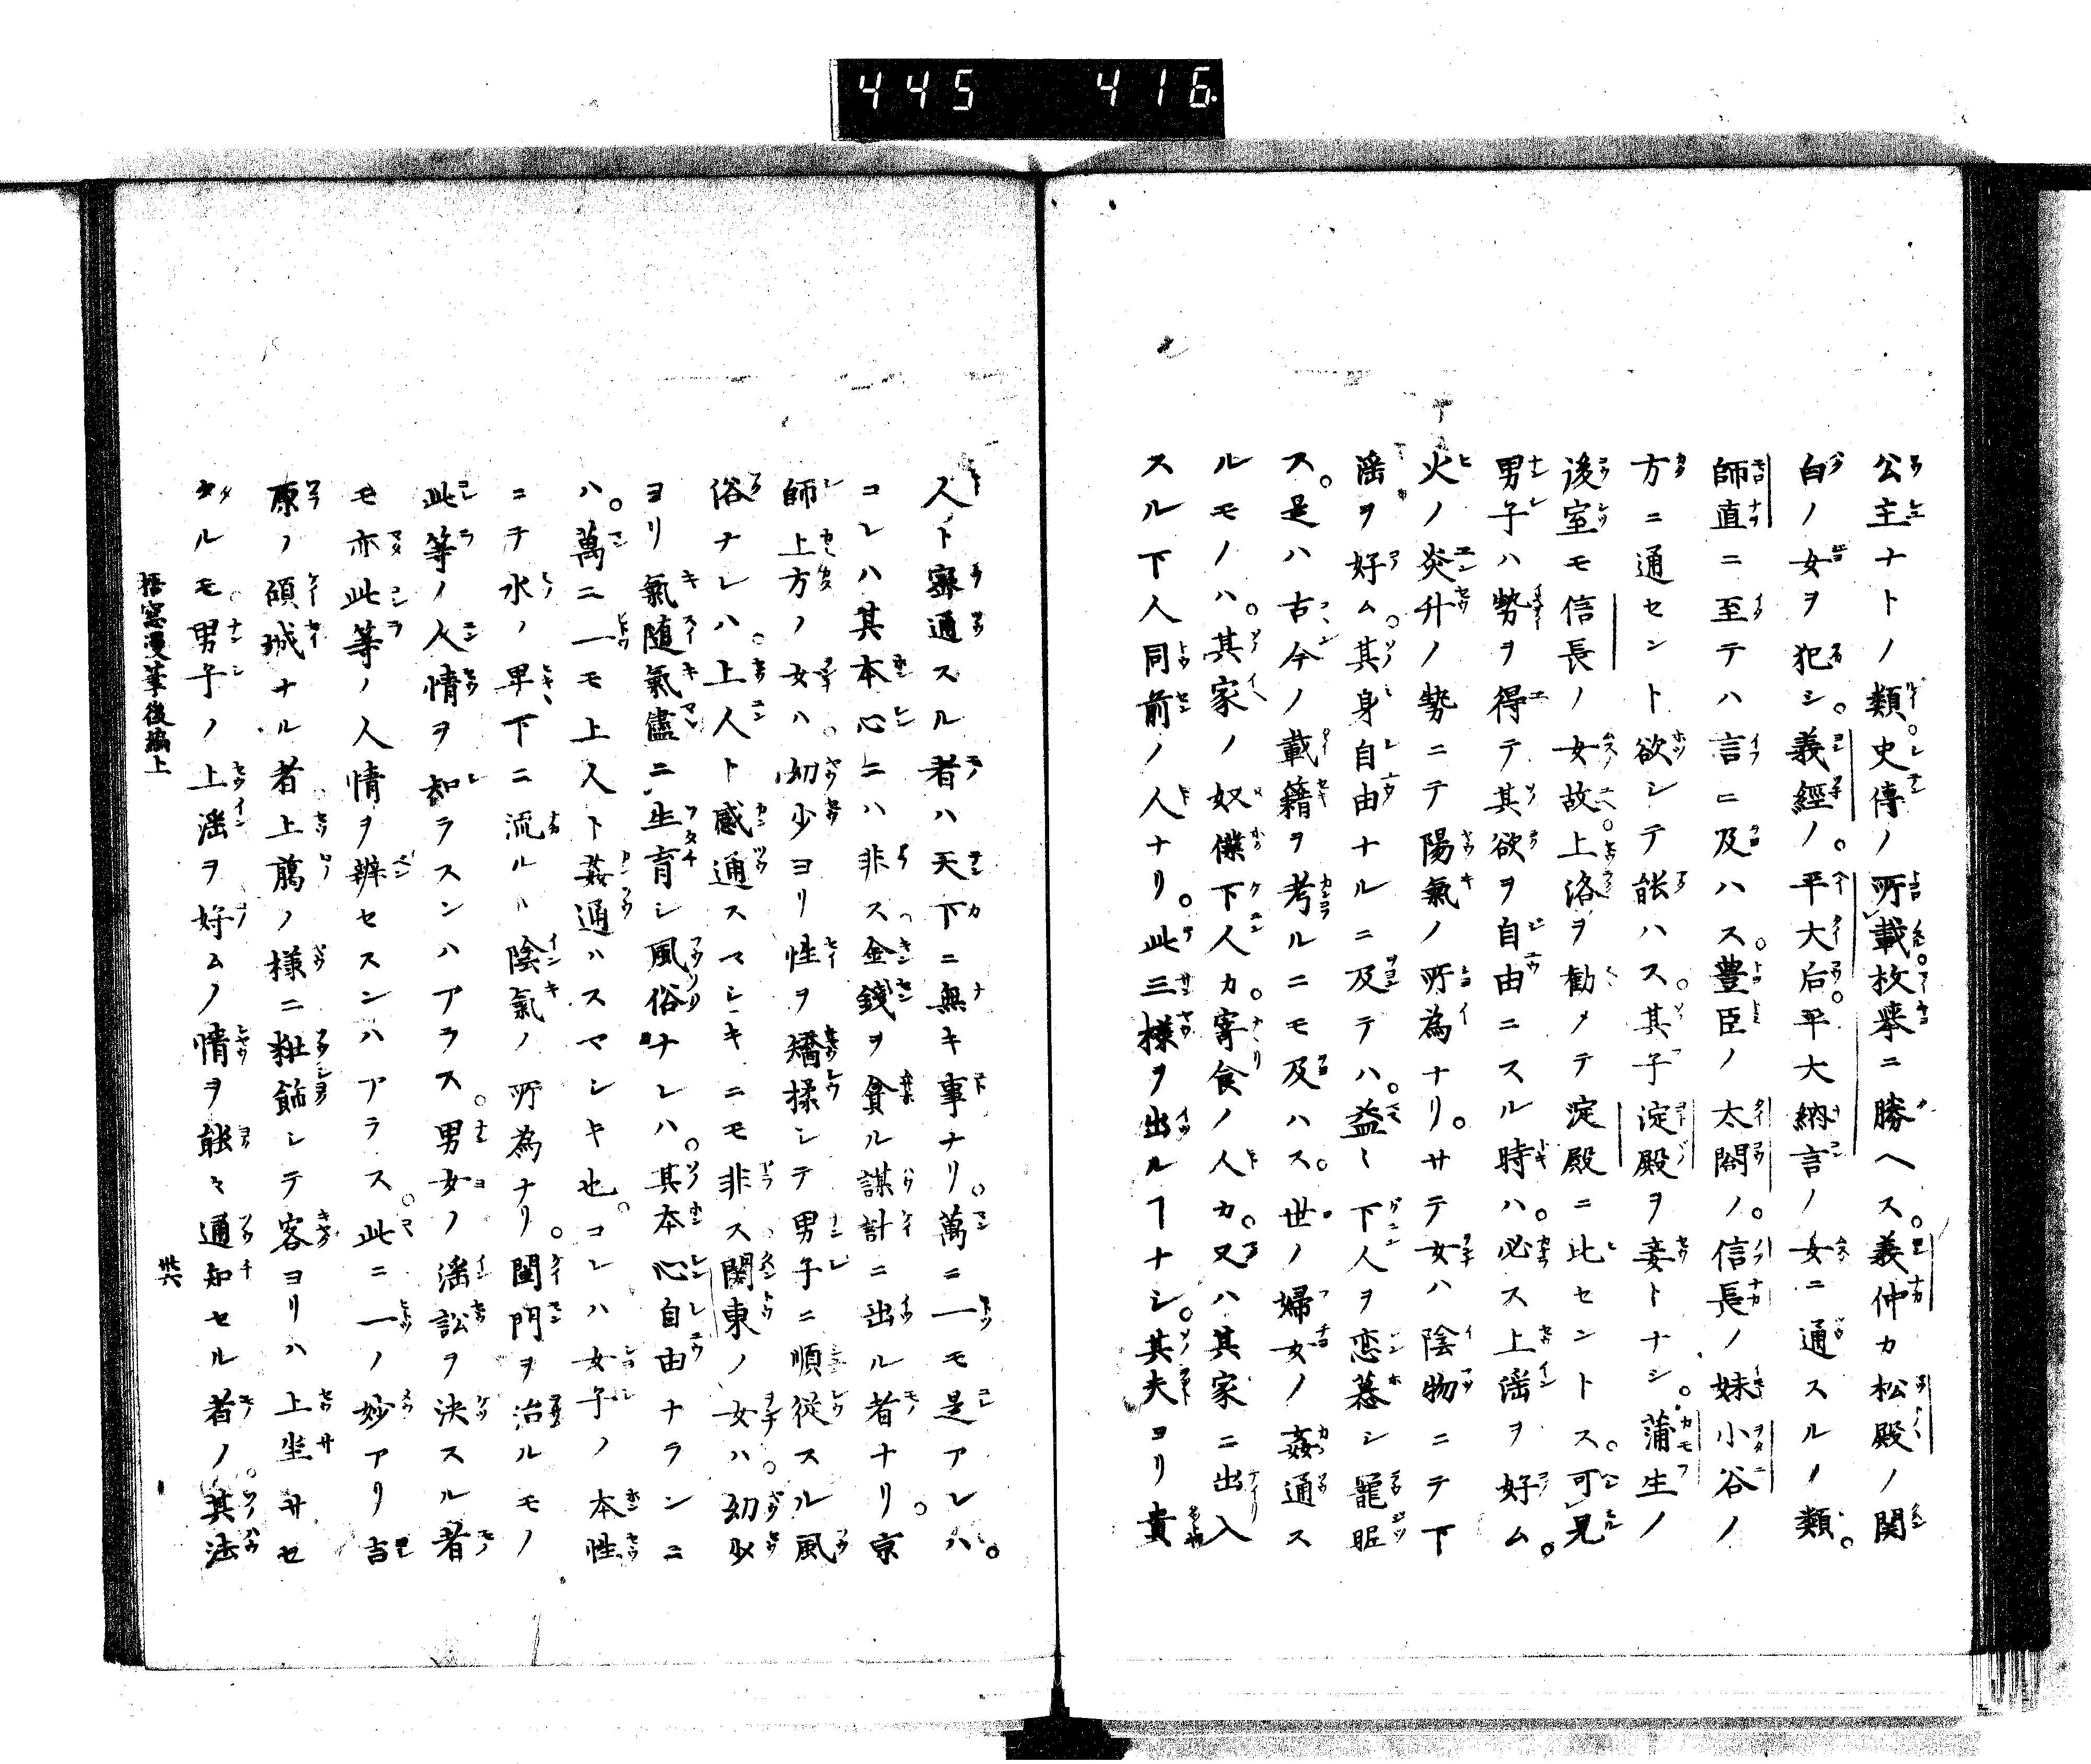 445 416
公主ナトノ類。史傳ノ所載枚擧ニ勝ヘス。義仲カ松殿ノ関
白ノ女ヲ犯シ。義經ノ。平大后。平大納言ノ女ニ通スルノ類。
師直ニ至テハ言ニ及ハス。豊臣ノ太閤ノ。信長ノ妹小谷ノ
方ニ通セント欲シテ能ハス。其子淀殿ヲ妾トナシ。蒲生ノ
後室モ信長ノ女故。上洛ヲ勧メテ淀殿ニ比セントス。可見
男子ハ勢ヲ得テ其欲ヲ自由ニスル時ハ。必ス上淫ヲ好ム。
火ノ炎升ノ勢ニテ陽氣ノ所為ナリ。サテ女ハ陰物ニテ下
淫ヲ好ム。其身自由ナルニ及テハ。益〻下人ヲ恋慕シ寵昵
ス。是ハ古今ノ載籍ヲ考ルニモ及ハス。世ノ婦女ノ姦通ス
ルモノハ。其家ノ奴僕下人カ。寄食ノ人カ。又ハ其家ニ出入
スル下人同前ノ人ナリ。此三様ヲ出ルヿナシ。其夫ヨリ貴
人ト密通スル者ハ天下ニ無キ事ナリ。萬ニ一モ是アレハ。
コレハ其本心ニハ非ス金錢ヲ貪ル謀計ニ出ル者ナリ。京
師上方ノ女ハ。幼少ヨリ性ヲ矯揉シテ男子ニ順從スル風
俗ナレハ。上人ト感通スマシキニモ非ス。関東ノ女ハ。幼少
ヨリ氣随氣儘ニ生育シ風俗ナレハ。其本心自由ナランニ
ハ。萬ニ一モ上人ト姦通ハスマシキ也。コレハ女子ノ本性
ニテ水ノ卑下ニ流ルヽ陰氣ノ所為ナリ。閨門ヲ治ルモノ
此等ノ人情ヲ知ラスンハアラス。男女ノ淫訟ヲ決スル者
モ亦此等ノ人情ヲ辨セスンハアラス。此ニ一ノ妙アリ吉
原ノ傾城ナル者。上﨟ノ様ニ粧飾シテ客ヨリハ上坐サセ
タルモ。男子ノ上淫ヲ好ムノ情ヲ能々通知セル者ノ。其法
梧窓漫筆後編上
丗六